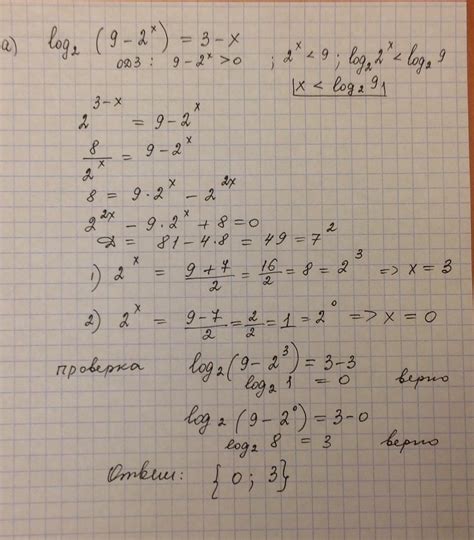 а) log₂ (9 - 2ˣ) = 3 - x
ОДЗ: 9 - 2ˣ > 0 ; 2ˣ < 9 ; log₂ 2ˣ < log₂ 9
x < log₂ 9
2³⁻ˣ = 9 - 2ˣ
8/2ˣ = 9 - 2ˣ
8 = 9 · 2ˣ - 2²ˣ
2²ˣ - 9 · 2ˣ + 8 = 0
Д = 81 - 4 · 8 = 49 = 7²
1) 2ˣ = (9 + 7)/2 = 16/2 = 8 = 2³ => x = 3
2) 2ˣ = (9 - 7)/2 = 2/2 = 1 = 2⁰ => x = 0
проверка log₂ (9 - 2³) = 3 - 3
log₂ 1 = 0 верно
log₂ (9 - 2⁰) = 3 - 0
log₂ 8 = 3 верно
Ответ: {0; 3}